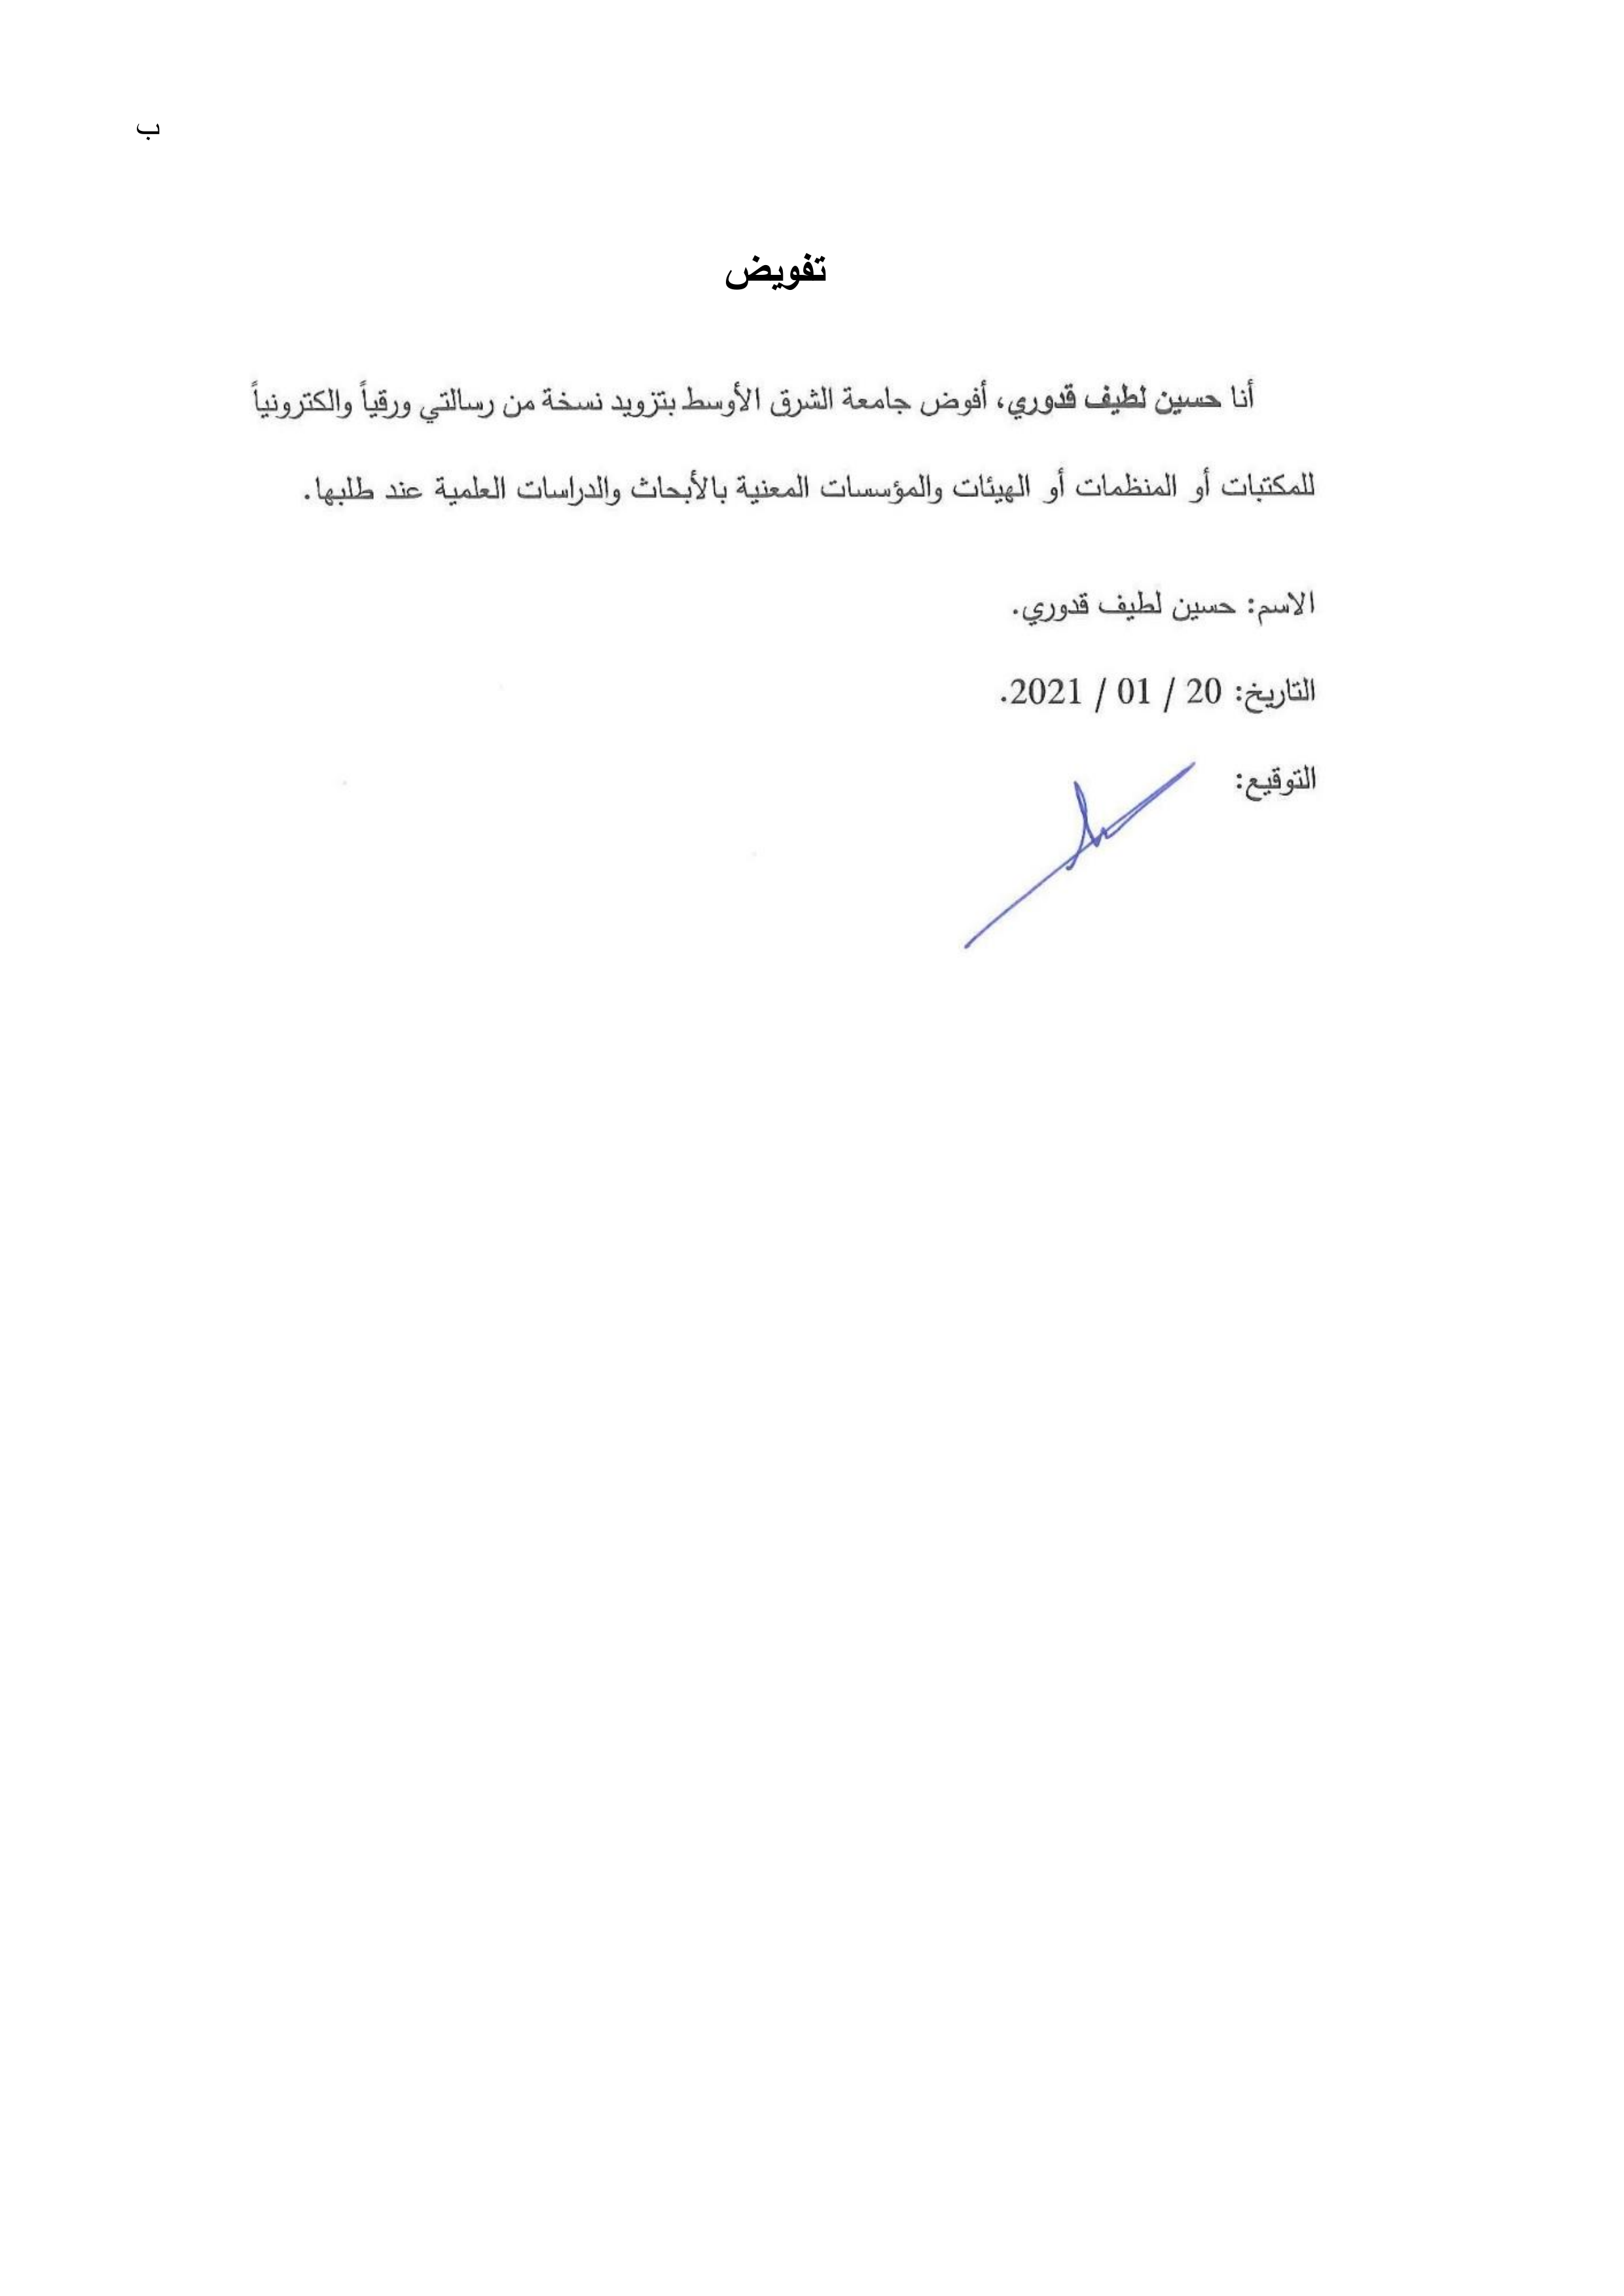 ب
تفويض
أنا حسين لطيف قدوري، أفوض جامعة الشرق الأوسط بتزويد نسخة من رسالتي ورقياً والكترونياً
للمكتبات أو المنظمات أو الهيئات والمؤسسات المعنية بالأبحاث والدراسات العلمية عند طلبها.
الاسم: حسين لطيف قدوري.
التاريخ: 20 / 01 / 2021.
التوقيع: